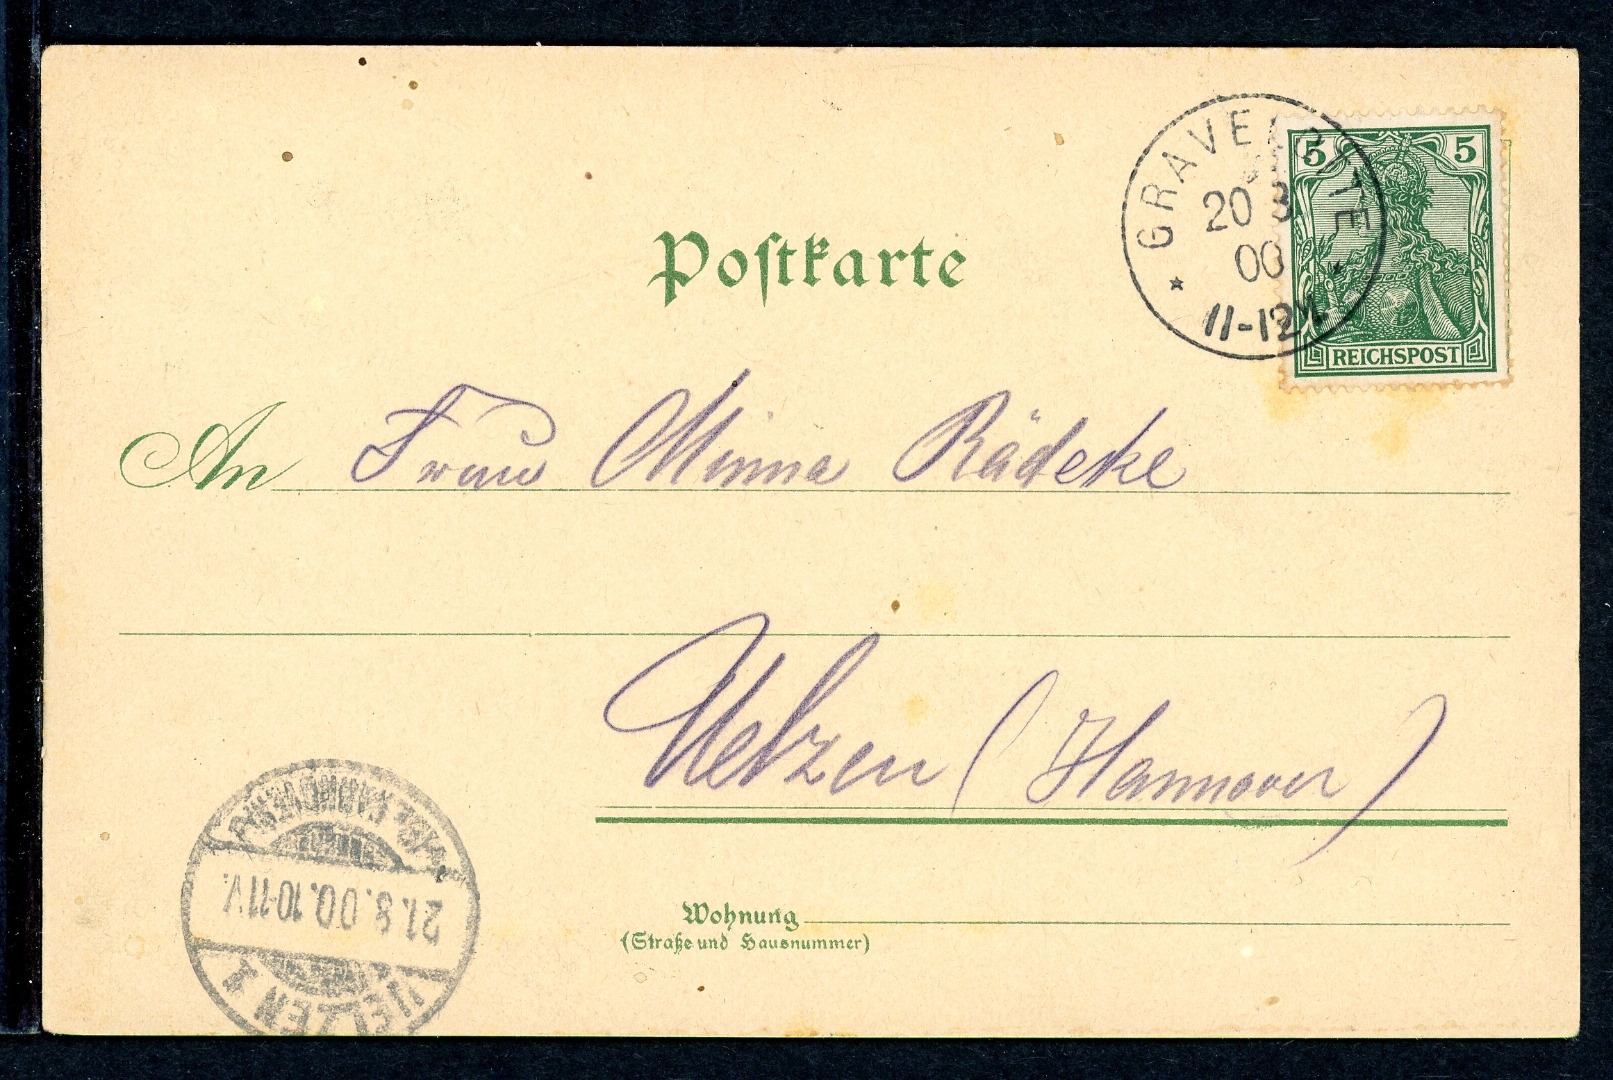 Postkarte
GRAVENSTE
20 8
00
11-12V
5 5
REICHSPOST
An Frau Minna Rädeke
Uelzen (Hannover)
Wohnung
(Straße und Hausnummer)
21.8.00.10-11V.
UELZEN 1